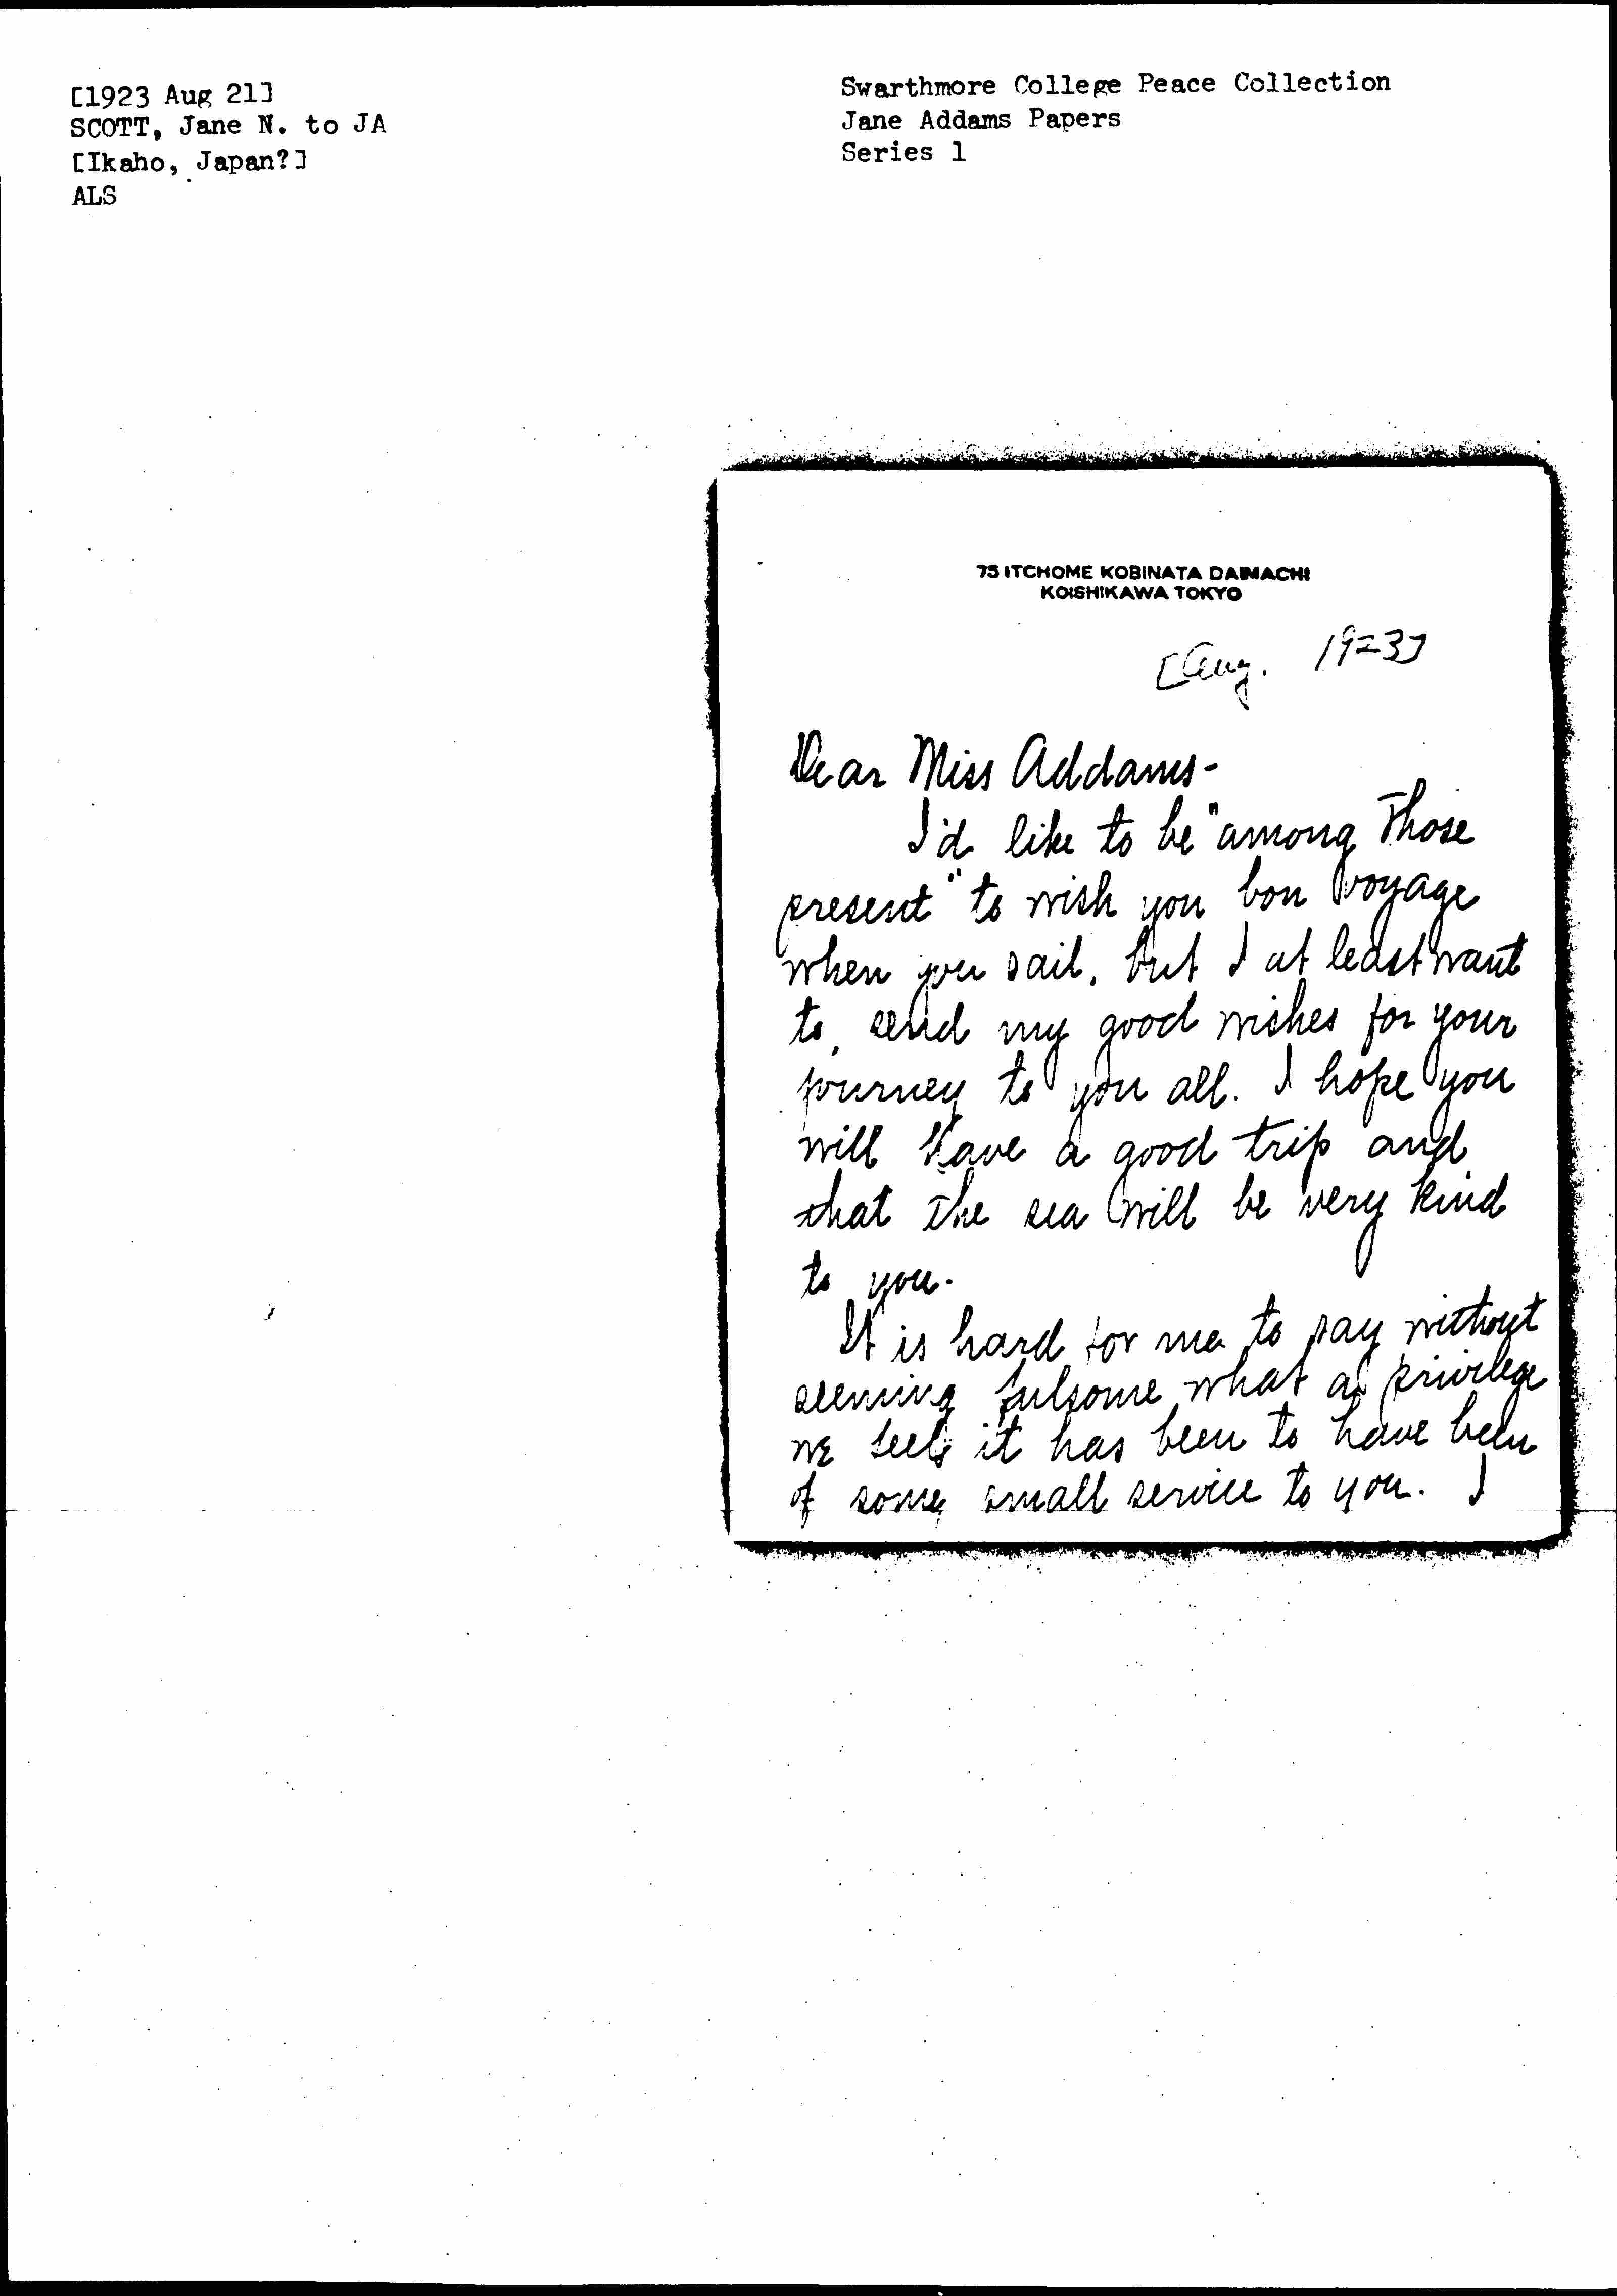 [1923 Aug 21]
SCOTT, Jane N. to JA
[Ikaho, Japan?]
ALS
Swarthmore College Peace Collection
Jane Addams Papers
Series 1
75 ITCHOME KOBINATA DAIMACHI
KOISHIKAWA TOKYO
[Aug. 1923]
Dear Miss Addams-
I'd like to be "among those
present" to wish you bon voyage
when you sail, but I at least want
to send my good wishes for your
journey to you all. I hope you
will have a good trip and
that the sea will be very kind
to you.
It is hard for me to say without
seeming fulsome what a privilege
we feel it has been to have been
of some small service to you. I